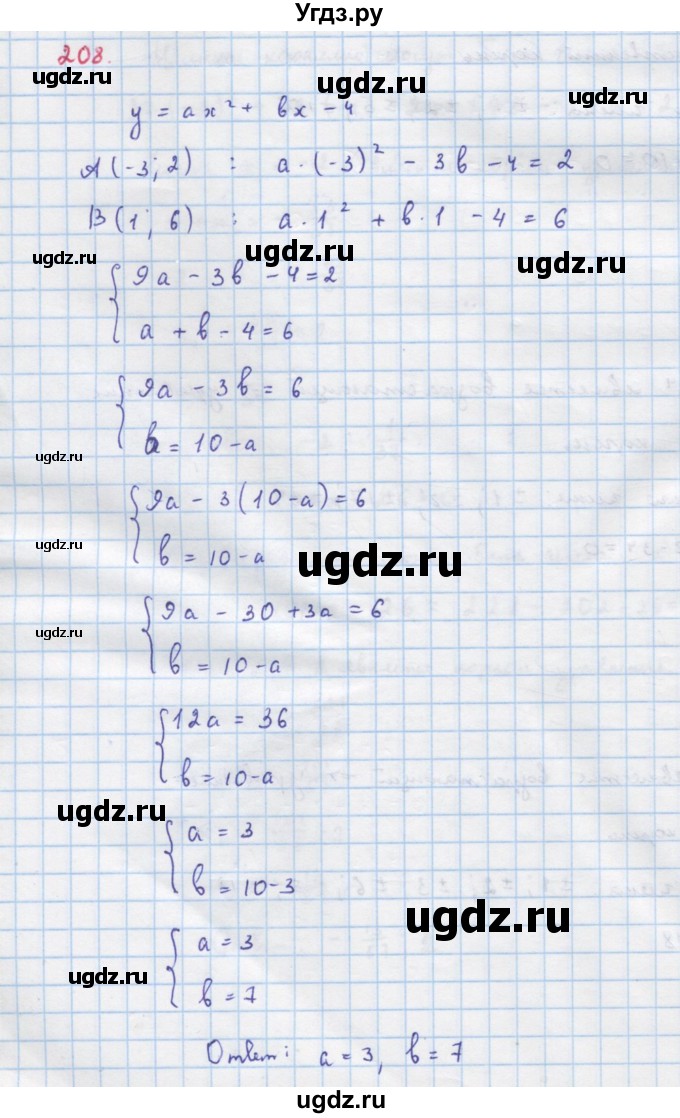 Угдз.ру
208.
ugdz.ru
ugdz.ru
y = ax² + bx - 4
A(-3; 2) : a·(-3)² - 3b - 4 = 2
ugdz.ru
B(1; 6) : a·1² + b·1 - 4 = 6
ugdz.ru
ugdz.ru
ugdz.ru
{ 9a - 3b - 4 = 2
a + b - 4 = 6
{ 9a - 3b = 6
ugdz.ru
b = 10 - a
ugdz.ru
{ 9a - 3(10 - a) = 6
ugdz.ru
b = 10 - a
ugdz.ru
{ 9a - 30 + 3a = 6
ugdz.ru
b = 10 - a
{ 12a = 36
b = 10 - a
ugdz.ru
{ a = 3
b = 10 - 3
ugdz.ru
{ a = 3
ugdz.ru
b = 7
Ответ: a = 3, b = 7
ugdz.ru